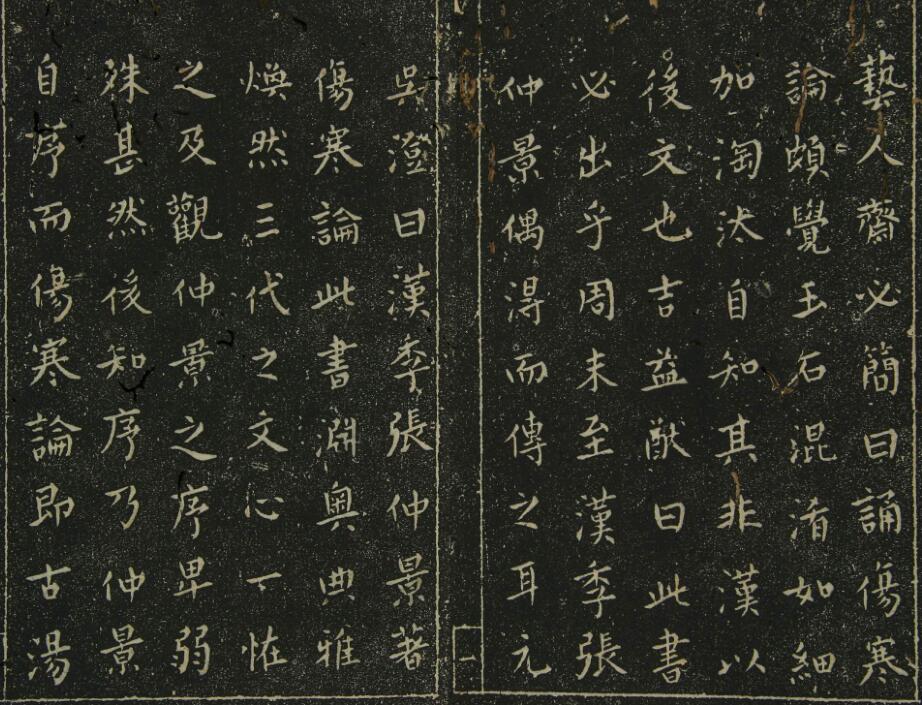 藝人齋必簡曰誦傷寒
論頗覺玉石混淆如細
加淘汰自知其非漢以
後文也吉益猷曰此書
必出乎周末至漢季張
仲景偶淂而傳之耳元
吳澄曰漢季張仲景著
傷寒論此書淵奥典雅
煥然三代之文心一恠
之及觀仲景之序卑弱
殊甚然後知序乃仲景
自序而傷寒論即古湯
一